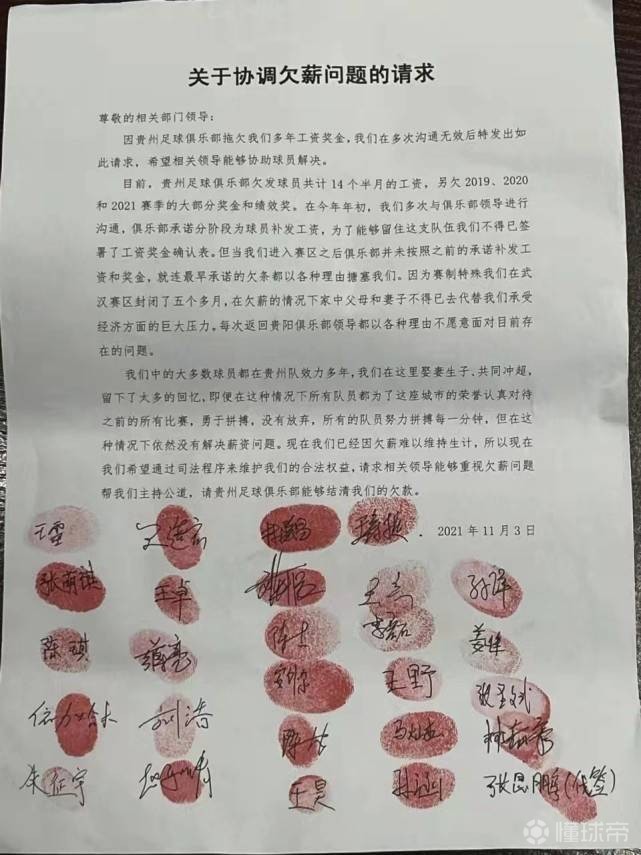 关于协调欠薪问题的请求
尊敬的相关部门领导：
因贵州足球俱乐部拖欠我们多年工资奖金，我们在多次沟通无效后特发出如
此请求，希望相关领导能够协助球员解决。
目前，贵州足球俱乐部欠发球员共计14个半月的工资，另欠2019、2020
和2021赛季的大部分奖金和绩效奖。在今年年初，我们多次与俱乐部领导进行
沟通，俱乐部承诺分阶段为球员补发工资，为了能够留住这支队伍我们不得已签
署了工资奖金确认表。但当我们进入赛区之后俱乐部并未按照之前的承诺补发工
资和奖金，就连最早承诺的欠条都以各种理由搪塞我们。因为赛制特殊我们在武
汉赛区封闭了五个多月，在欠薪的情况下家中父母和妻子不得已去代替我们承受
经济方面的巨大压力。每次返回贵阳俱乐部领导都以各种理由不愿意面对目前存
在的问题。
我们中的大多数球员都在贵州队效力多年，我们在这里娶妻生子、共同冲超，
留下了太多的回忆，即便在这种情况下所有队员都为了这座城市的荣誉认真对待
之前的所有比赛，勇于拼搏，没有放弃，所有的队员努力拼搏每一分钟，但在这
种情况下依然没有解决薪资问题。现在我们已经因欠薪难以维持生计，所以现在
我们希望通过司法程序来维护我们的合法权益，请求相关领导能够重视欠薪问题
帮我们主持公道，请贵州足球俱乐部能够结清我们的欠款。
2021年11月3日
王卓
陈琪
王野
刘浩
朱征宇 王昊 张昆鹏(代签)
懂球帝